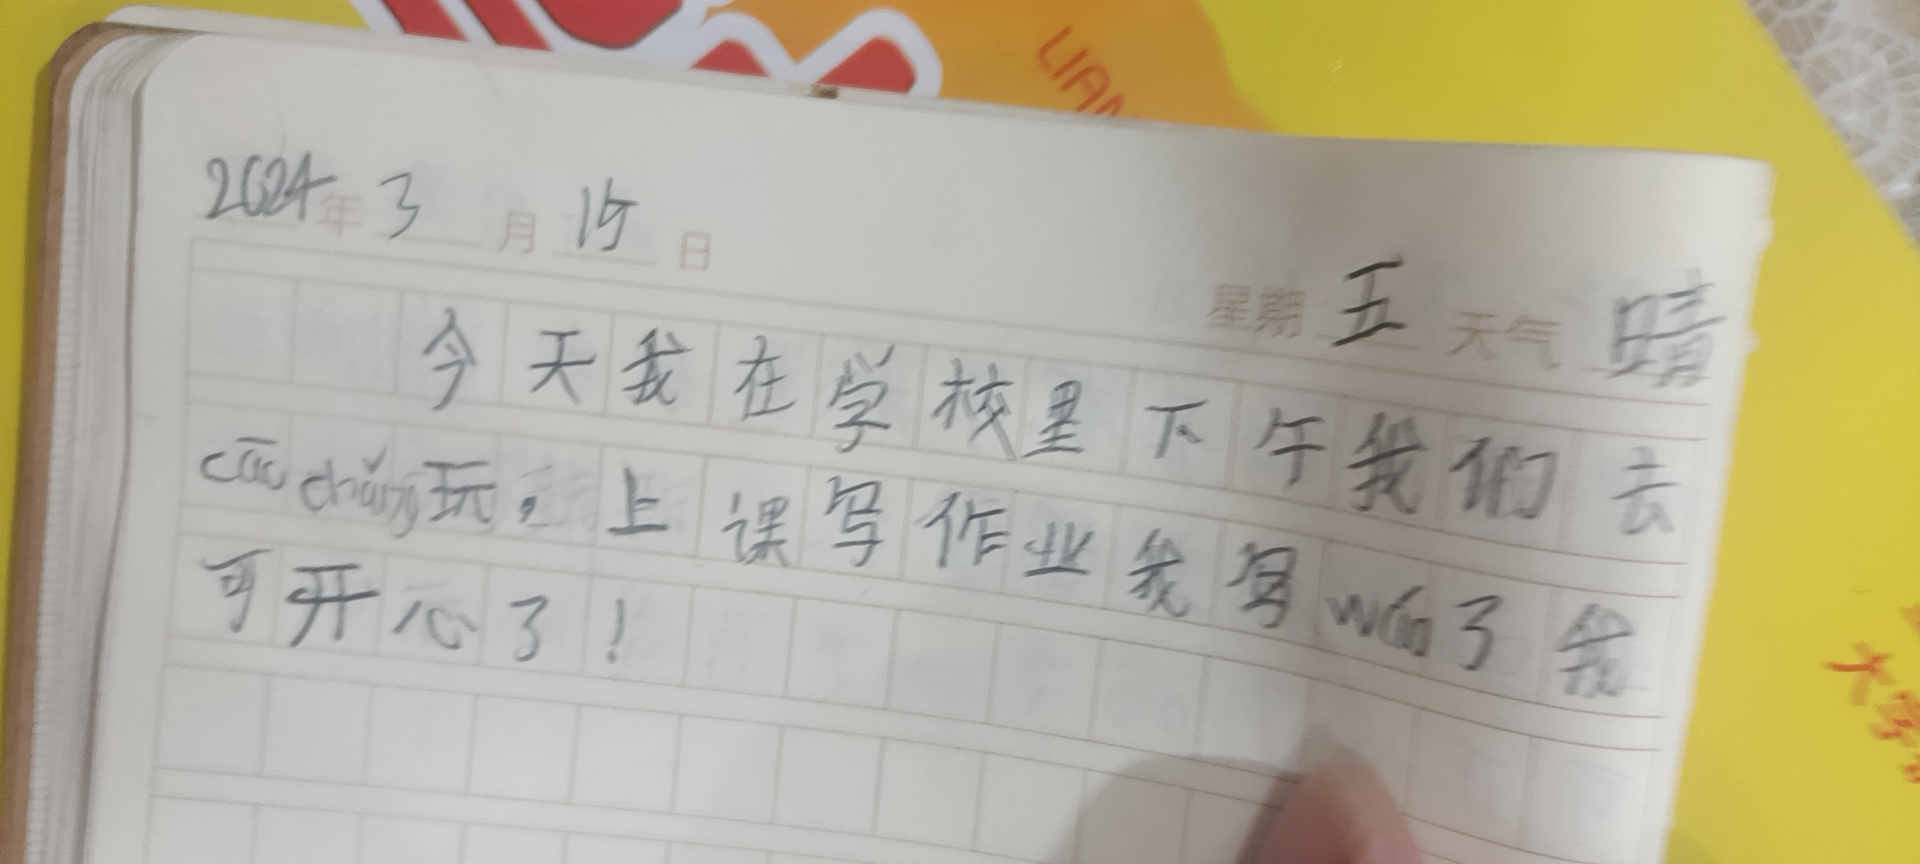 LIAN
2024年3月15日
星期五 天气 晴
今天我在学校里下午我们去
cāo chǎng玩，上课写作业我写wán了我
可开心了！